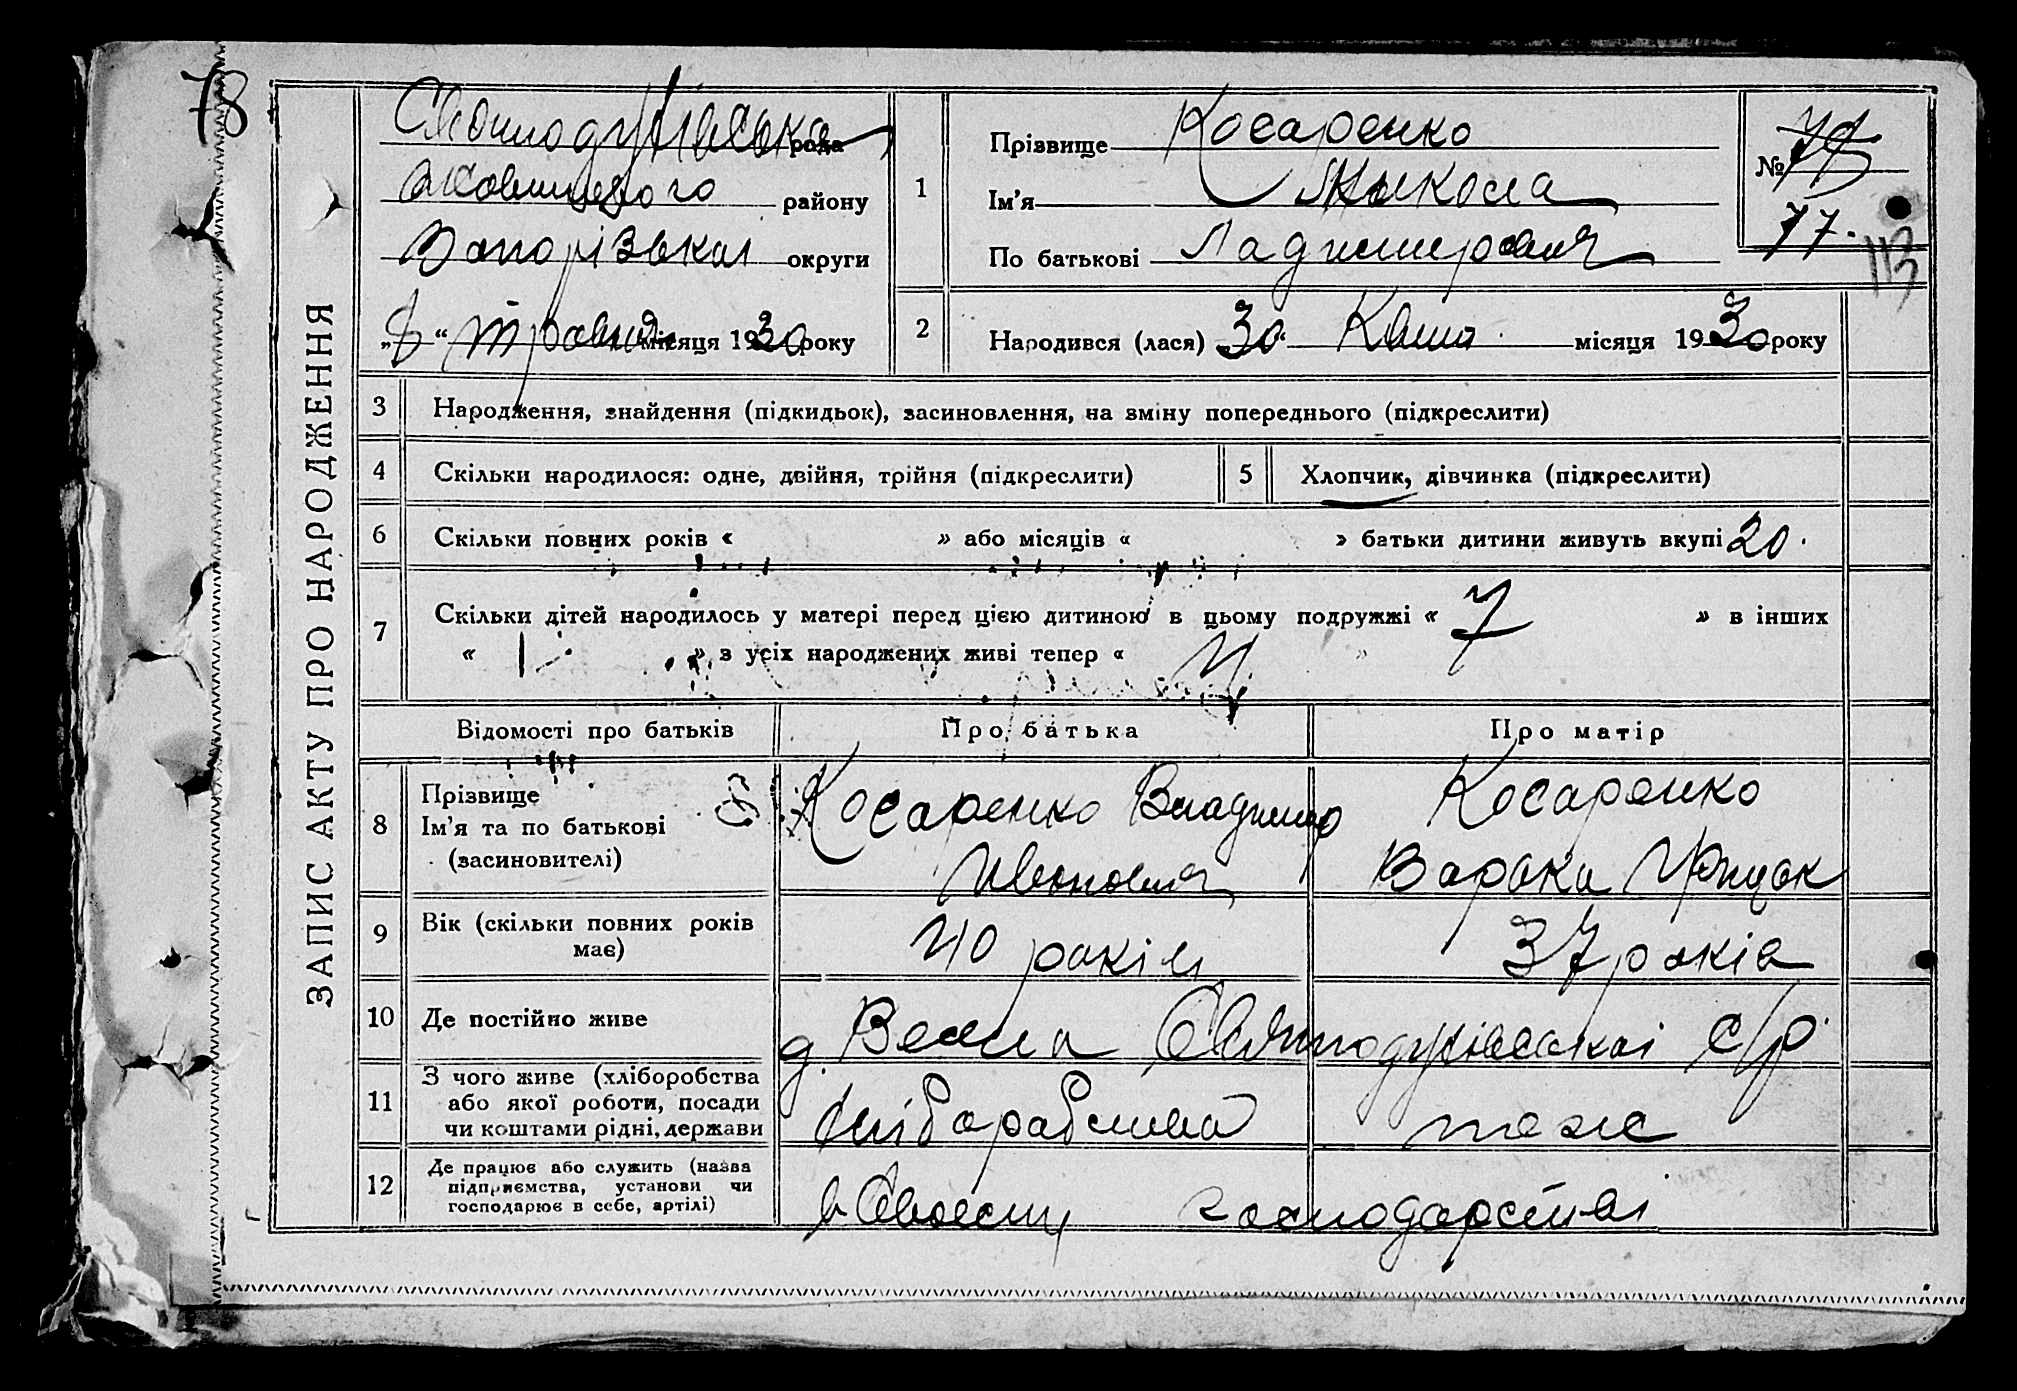 78
ЗАПИС АКТУ ПРО НАРОДЖЕННЯ
рада
району
Запорізькоі округи
„8“ травня місяця 1930 року
1
Прізвище Косаренко
Ім'я Мыкола
По батькові
№
77.
113
2
Народився (лася) „30“ місяця 1930 року
3
Народження, знайдення (підкидьок), засиновлення, на зміну попереднього (підкреслити)
4
Скільки народилося: одне, двійня, трійня (підкреслити)
5
Хлопчик, дівчинка (підкреслити)
6
Скільки повних років « » або місяців « » батьки дитини живуть вкупі 20.
7
Скільки дітей народилось у матері перед цією дитиною в цьому подружжі « 7 » в інших
« » з усіх народжених живі тепер « »
Відомості про батьків
Про батька
Про матір
8
Прізвище
Ім'я та по батькові
(засиновителі)
Косаренко Владимир
Иванович
Косаренко
9
Вік (скільки повних років
має)
40 років
37 років
10
Де постійно живе
с/р.
11
З чого живе (хліборобства
або якої роботи, посади
чи коштами рідні, держави
тоже
12
Де працює або служить (назва
підприємства, установи чи
господарює в себе, артілі)
в своему господарстві